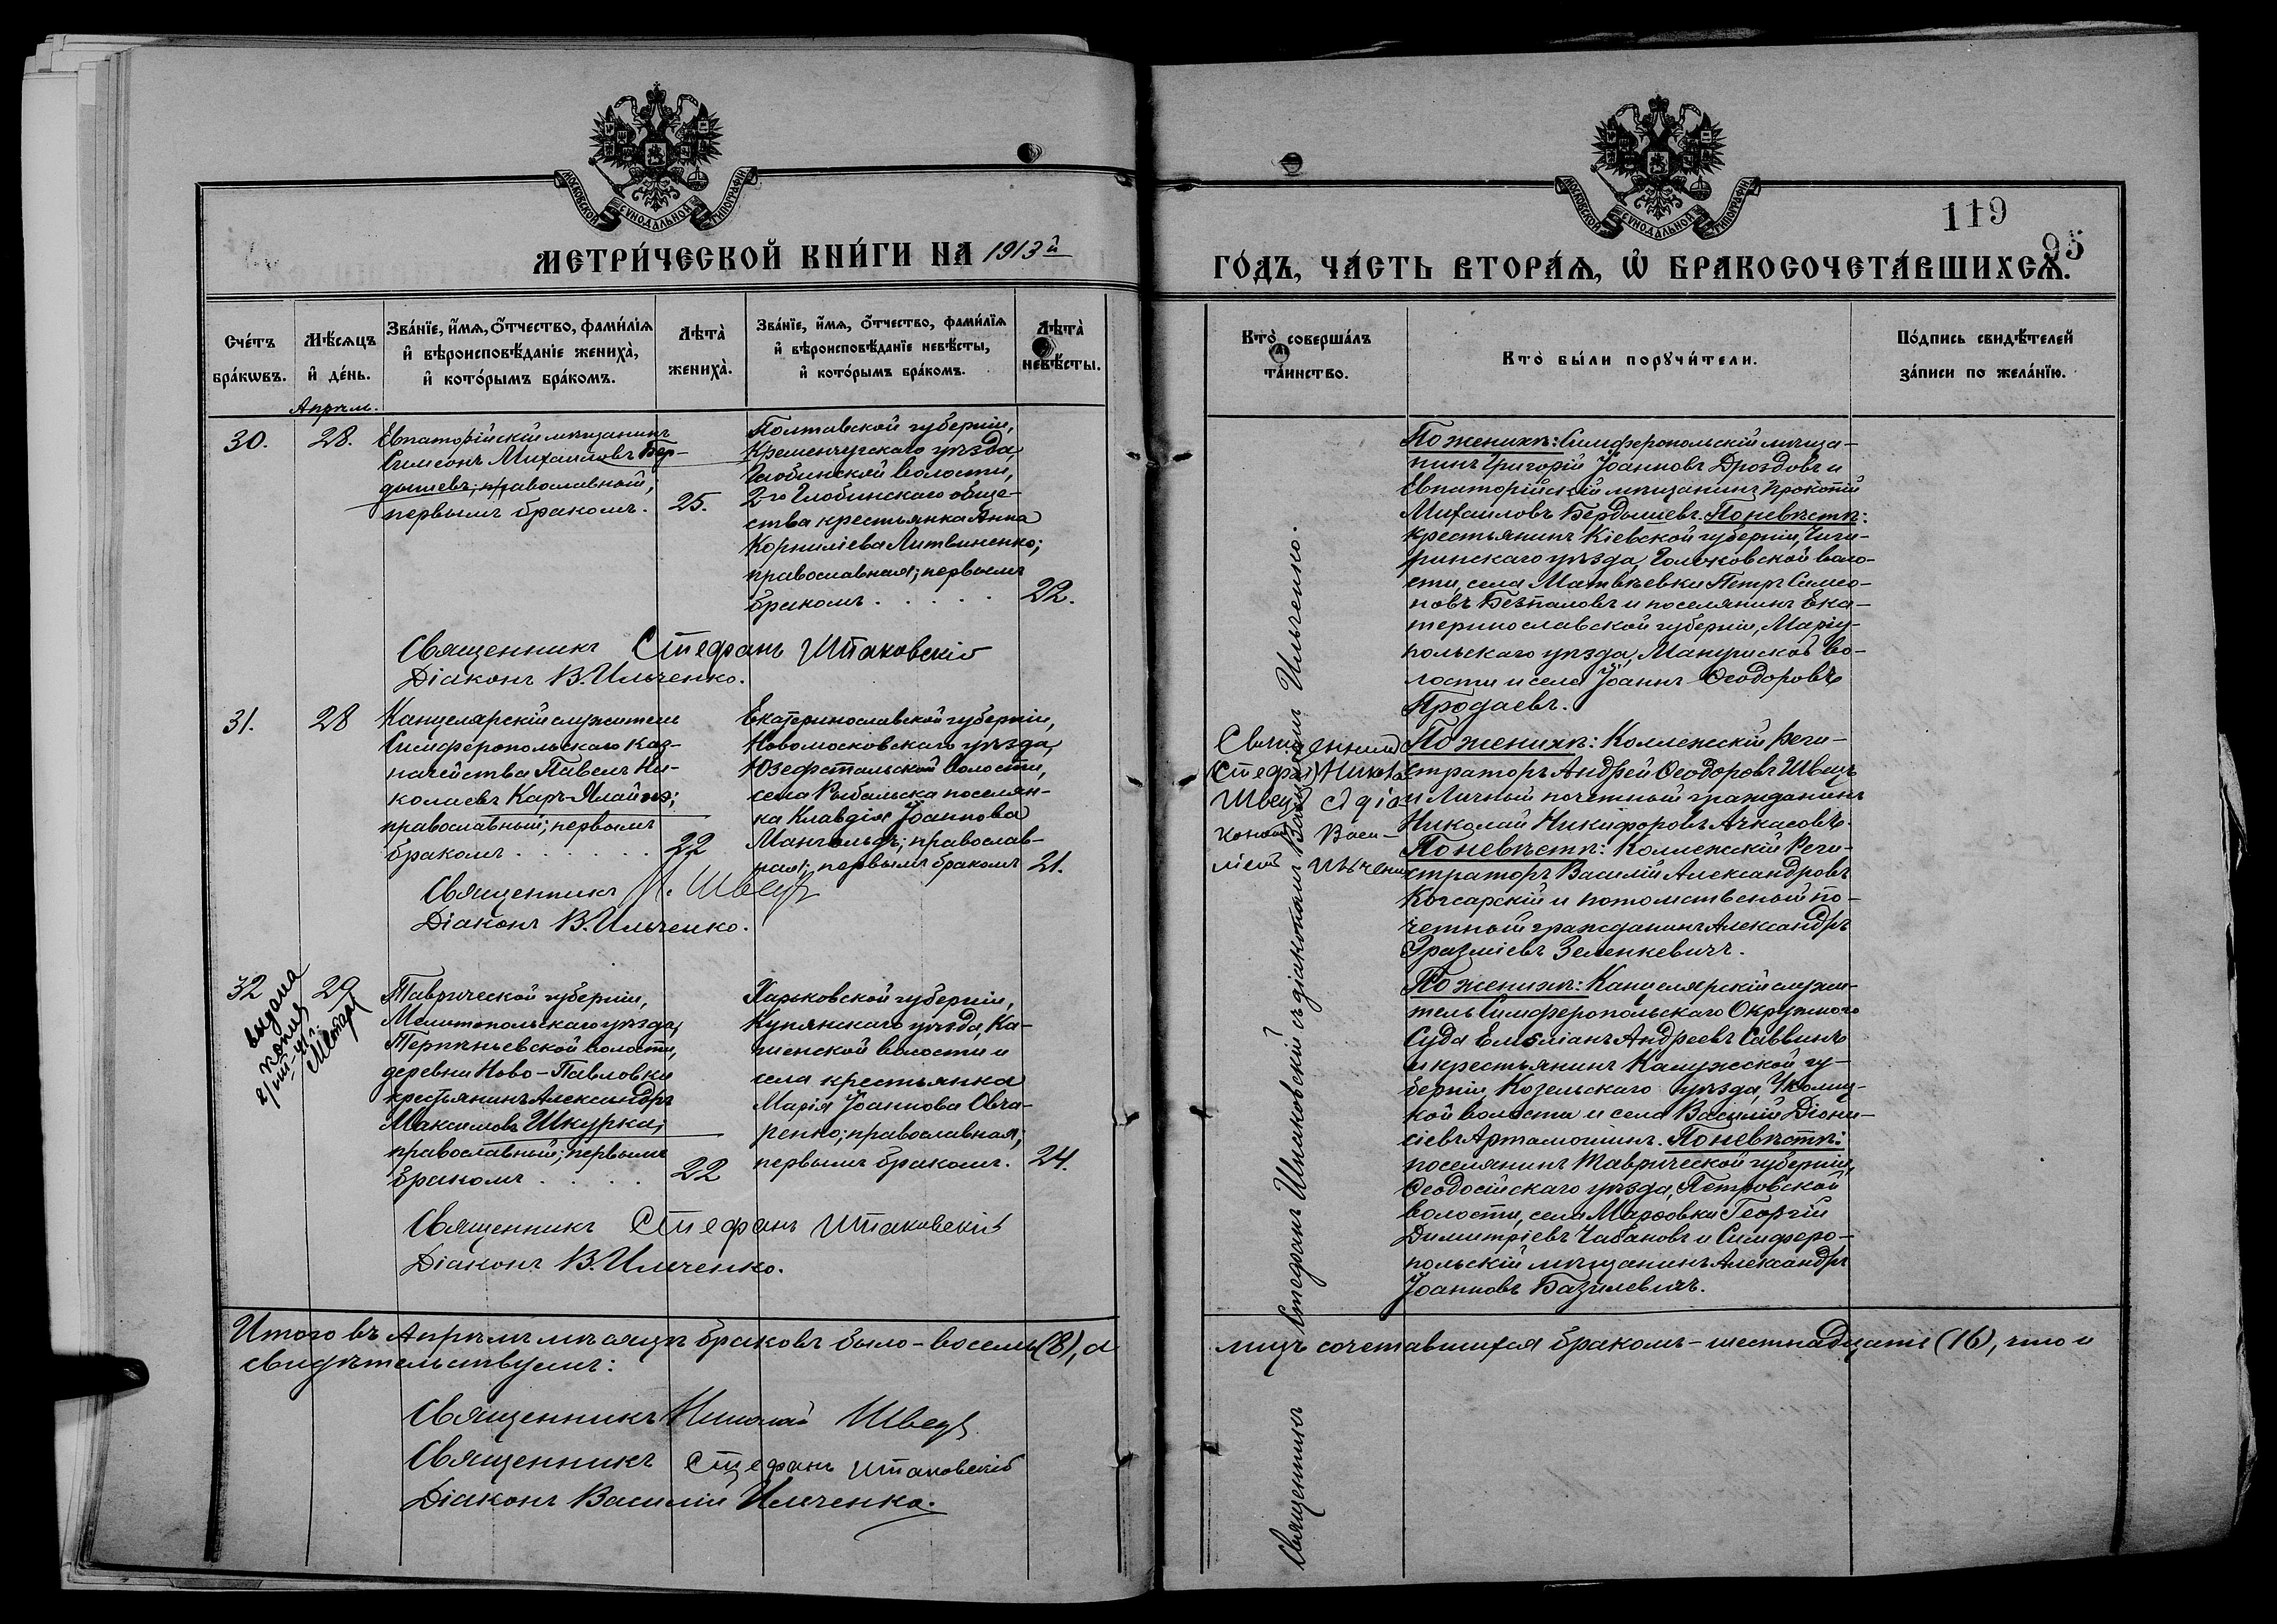 МОСКОВСКОЙ СѴНОДАЛЬНОЙ ТИПОГРАФІИ
МЕТРИ́ЧЕСКОЙ КНИ́ГИ НА 1913й
Сче́тъ бра́кѡвъ.
Мѣ́сяцъ и҆ де́нь.
Зва́нїе, и҆́мѧ, ѻ҆́тчество, фами́лїѧ и҆ вѣроисповѣ́данїе жениха̀, и҆ кото́рымъ бра́комъ.
Лѣ́та жениха̀.
Зва́нїе, и҆́мѧ, ѻ҆́тчество, фами́лїѧ и҆ вѣроисповѣ́данїе невѣ́сты, и҆ кото́рымъ бра́комъ.
Лѣ́та невѣ́сты.
Апрѣль.
30.
28.
Евпаторійскій мѣщанинъ
Симеонъ Михаиловъ Бер-
дышевъ; православный;
первымъ бракомъ.
25.
Полтавской губерніи,
Кременчугскаго уѣзда,
Глобинской волости,
2-го Глобинскаго обще-
ства крестьянка Анна
Корниліева Литвиненко;
православная; первымъ
бракомъ . . . . .
22.
Священникъ Стефанъ Шпаковскій
Діаконъ В. Ильченко.
31.
28
Канцелярскій служитель
Симферопольскаго Каз-
начейства Павелъ Ни-
колаевъ Каръ-Ялайно;
православный; первымъ
бракомъ . . . . . .
22
Екатеринославской губерніи,
Новомосковскаго уѣзда,
Юзефстальской волости,
села Рыбальска поселян-
ка Клавдія Іоаннова
Мангольдъ; православ-
ная; первымъ бракомъ
21.
Священникъ Н. Швецъ
Діаконъ В. Ильченко.
32
29
выдана
копия
Таврической губерніи,
Мелитопольскаго уѣзда,
Терпѣньевской волости,
деревни Ново-Павловки
крестьянинъ Александръ
Максимовъ Шкурка;
православный; первымъ
бракомъ . . . . .
22
Харьковской губерніи,
Купянскаго уѣзда, Ка-
менской волости и
села крестьянка
Марія Іоаннова Овча-
ренко; православная;
первымъ бракомъ.
24.
Священникъ Стефанъ Шпаковскій
Діаконъ В. Ильченко.
Итого въ Апрѣлѣ мѣсяцѣ браковъ было - восемь (8), а
свидѣтельствуемъ:
Священникъ Николай Швецъ
Священникъ Стефанъ Шпаковскій
Діаконъ Василій Ильченко.
МОСКОВСКОЙ СѴНОДАЛЬНОЙ ТИПОГРАФІИ
119
95
ГО́ДЪ, ЧА́СТЬ ВТОРА́Ѧ, Ѡ҆ БРАКОСОЧЕТА́ВШИХСѦ.
Кто̀ соверша́лъ та́инство.
Кто̀ бы́ли порꙋчи́тели.
По́дпись свидѣ́телей за́писи по жела́нїю.
Священникъ Стефанъ Шпаковскій съ діакономъ Василіемъ Ильченко.
По женихѣ: Симферопольскій мѣща-
нинъ Григорій Іоанновъ Дроздовъ и
Евпаторійскій мѣщанинъ Прокопій
Михаиловъ Бердышевъ. По невѣстѣ:
крестьянинъ Кіевской губерніи, Чиги-
ринскаго уѣзда, Головковской воло-
сти, села Матвѣевки Петръ Симео-
новъ Безпаловъ и поселянинъ Ека-
теринославской губерніи, Маріу-
польскаго уѣзда, Мангушской во-
лости и села Іоаннъ Ѳеодоровъ
Продаевъ.
Священник
Николай
Швец с діа-
кономъ Васи-
ліем Ильченко
По женихѣ: Коллежскій Реги-
страторъ Андрей Ѳеодоровъ Швецъ
и Личный почетный гражданинъ
Николай Никифоровъ Ачкасовъ.
По невѣстѣ: Коллежскій Реги-
страторъ Василій Александровъ
Косарскій и потомственный по-
четный гражданинъ Александръ
Эразміевъ Зеленкевичъ.
По женихѣ: Канцелярскій служи-
тель Симферопольскаго Окружного
Суда Емеліанъ Андреевъ Саввинъ
и крестьянинъ Калужской гу-
берніи, Козельскаго уѣзда,
кой волости и села Василій Діони-
сіевъ Артамошинъ. По невѣстѣ:
поселянинъ Таврической губерніи,
Ѳеодосійскаго уѣзда, Петровской
волости, села Марфовки Георгій
Димитріевъ Чабановъ и Симферо-
польскій мѣщанинъ Александръ
Іоанновъ Базилевичъ.
лицъ сочетавшихся бракомъ - шестнадцать (16), что и